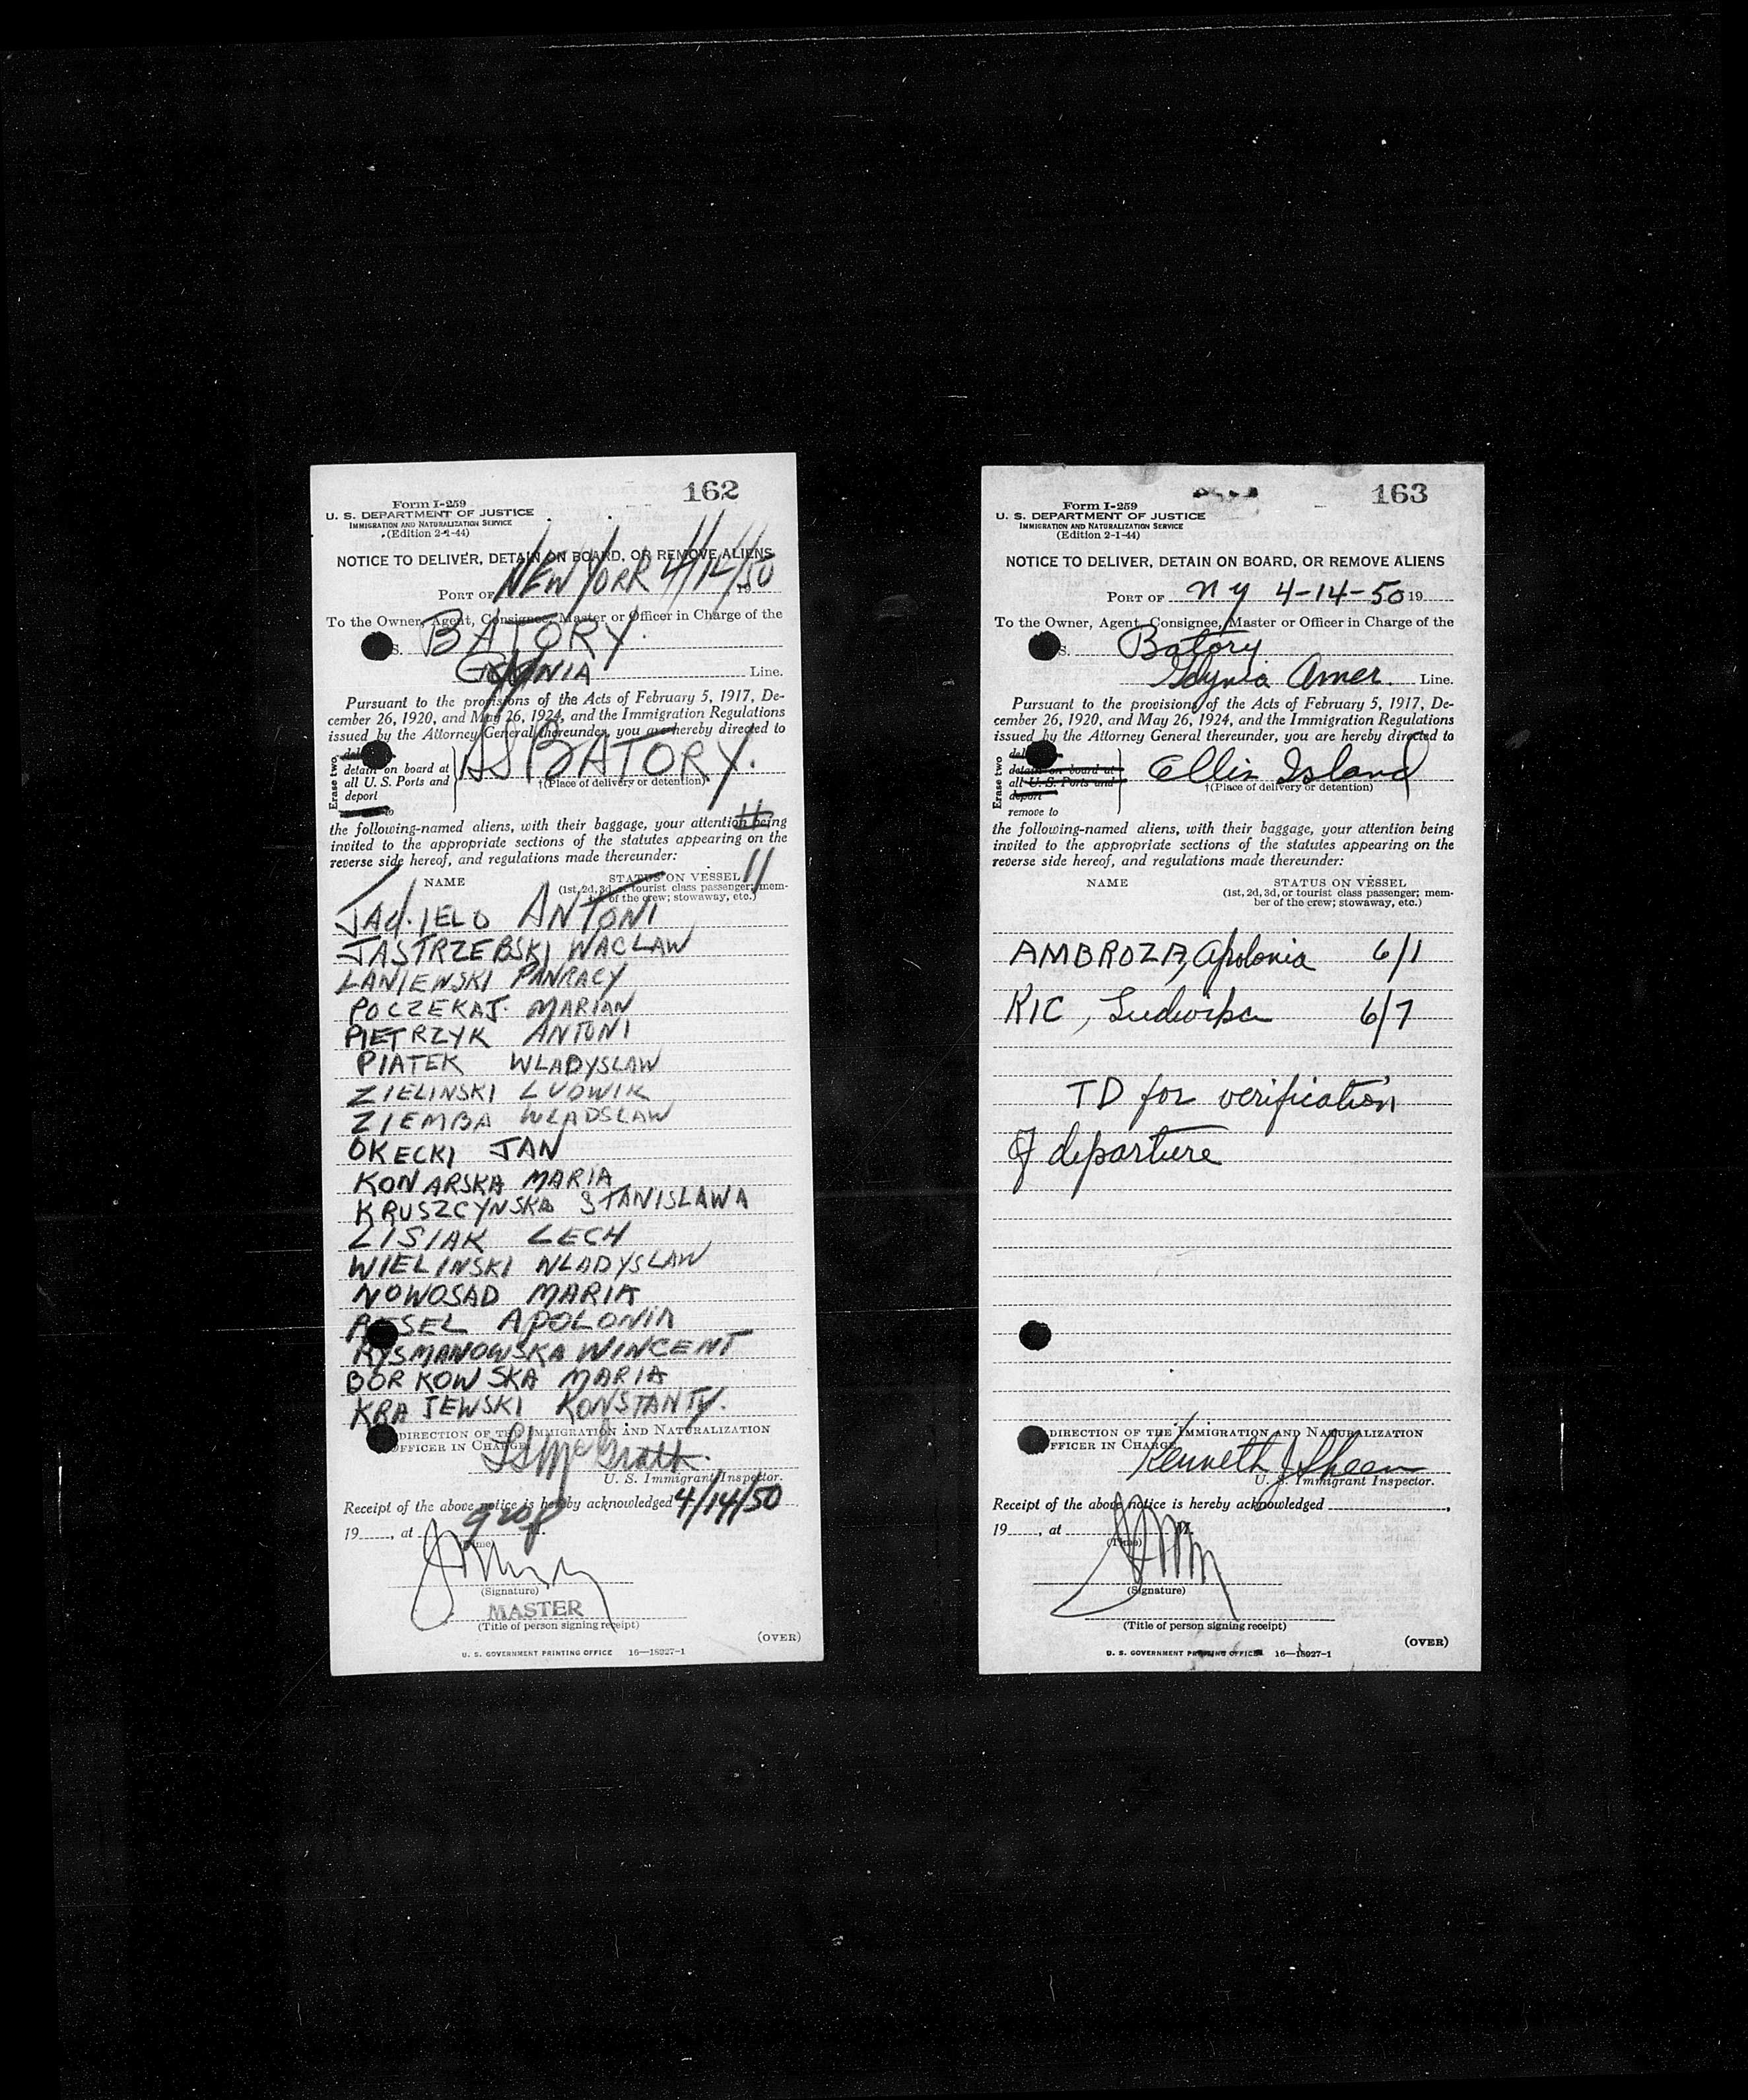 162
Form I-259
U. S. DEPARTMENT OF JUSTICE
IMMIGRATION AND NATURALIZATION SERVICE
(Edition 2-1-44)
NOTICE TO DELIVER, DETAIN ON BOARD, OR REMOVE ALIENS
PORT OF NEW YORK 4/14/50, 19
To the Owner, Agent, Consignee, Master or Officer in Charge of the
S. BATORY.
GDYNIA Line.
Pursuant to the provisions of the Acts of February 5, 1917, De-
cember 26, 1920, and May 26, 1924, and the Immigration Regulations
issued by the Attorney General thereunder, you are hereby directed to
Erase two
detain on board at
all U. S. Ports and
deport
to
SS BATORY.
†(Place of delivery or detention)
the following-named aliens, with their baggage, your attention being
invited to the appropriate sections of the statutes appearing on the
reverse side hereof, and regulations made thereunder:
NAME STATUS ON VESSEL
(1st, 2d, 3d, or tourist class passenger; mem-
ber of the crew; stowaway, etc.)
11
ANTONI
JASTRZEBSKI WACLAW
LANIEWSKI PANRACY
POCZEKAJ. MARIAN
PIETRZYK ANTONI
PIATEK WLADYSLAW
ZIELINSKI LUDWIK
ZIEMBA WLADSLAW
OKECKI JAN
KONARSKA MARIA
KRUSZCYNSKA STANISLAWA
LISIAK LECH
WIELINSKI WLADYSLAW
NOWOSAD MARIA
APOLONIA
RYSMANOWSKA WINCENT
BORKOWSKA MARIA
KRAJEWSKI KONSTANTY.
DIRECTION OF THE IMMIGRATION AND NATURALIZATION
OFFICER IN CHARGE
McGrath
U. S. Immigrant Inspector.
Receipt of the above notice is hereby acknowledged 4/14/50,
19, at M.
(Time)
(Signature)
MASTER
(Title of person signing receipt)
(OVER)
U. S. GOVERNMENT PRINTING OFFICE 16—18927-1
163
Form I-259
U. S. DEPARTMENT OF JUSTICE
IMMIGRATION AND NATURALIZATION SERVICE
(Edition 2-1-44)
NOTICE TO DELIVER, DETAIN ON BOARD, OR REMOVE ALIENS
PORT OF N Y 4-14-50 19
To the Owner, Agent, Consignee, Master or Officer in Charge of the
S. Batory
Gdynia Amer. Line.
Pursuant to the provisions of the Acts of February 5, 1917, De-
cember 26, 1920, and May 26, 1924, and the Immigration Regulations
issued by the Attorney General thereunder, you are hereby directed to
Erase two
detain on board at
all U. S. Ports and
deport
remove to
Ellis Island
†(Place of delivery or detention)
the following-named aliens, with their baggage, your attention being
invited to the appropriate sections of the statutes appearing on the
reverse side hereof, and regulations made thereunder:
NAME STATUS ON VESSEL
(1st, 2d, 3d, or tourist class passenger; mem-
ber of the crew; stowaway, etc.)
AMBROZA, Apolonia 6/1
KIC, Ludwika 6/7
TD for verification
of departure
DIRECTION OF THE IMMIGRATION AND NATURALIZATION
OFFICER IN CHARGE
Kenneth J Sheen
U. S. Immigrant Inspector.
Receipt of the above notice is hereby acknowledged,
19, at M.
(Time)
(Signature)
(Title of person signing receipt)
(OVER)
U. S. GOVERNMENT PRINTING OFFICE 16—18927-1